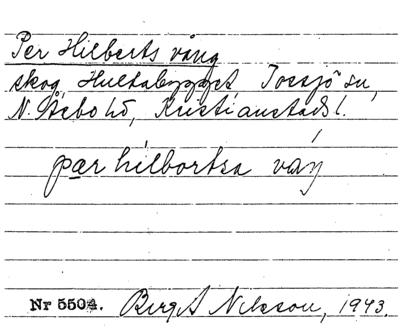 Per Hilberts vång
skog, Hultabygget, Tossjö sn,
N. Åsbo hd, Kristianstads l.
pær hilbertsa váŋ
Nr 5504. Birgit Nilsson, 1943.